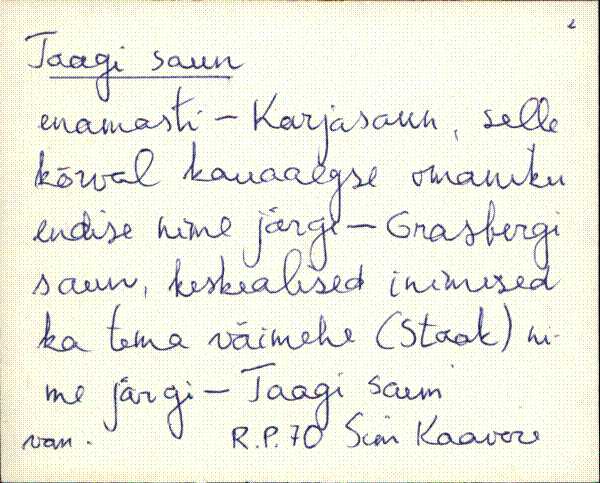 Taagi saun
enamasti – Karjasaun, selle
kõrval kauaaegse omaniku
endise nime järgi – Grasbergi
saun, keskealised inimesed
ka tema väimehe (Staak) ni-
me järgi – Taagi saun
van. R.P.70 Siin Kaavere